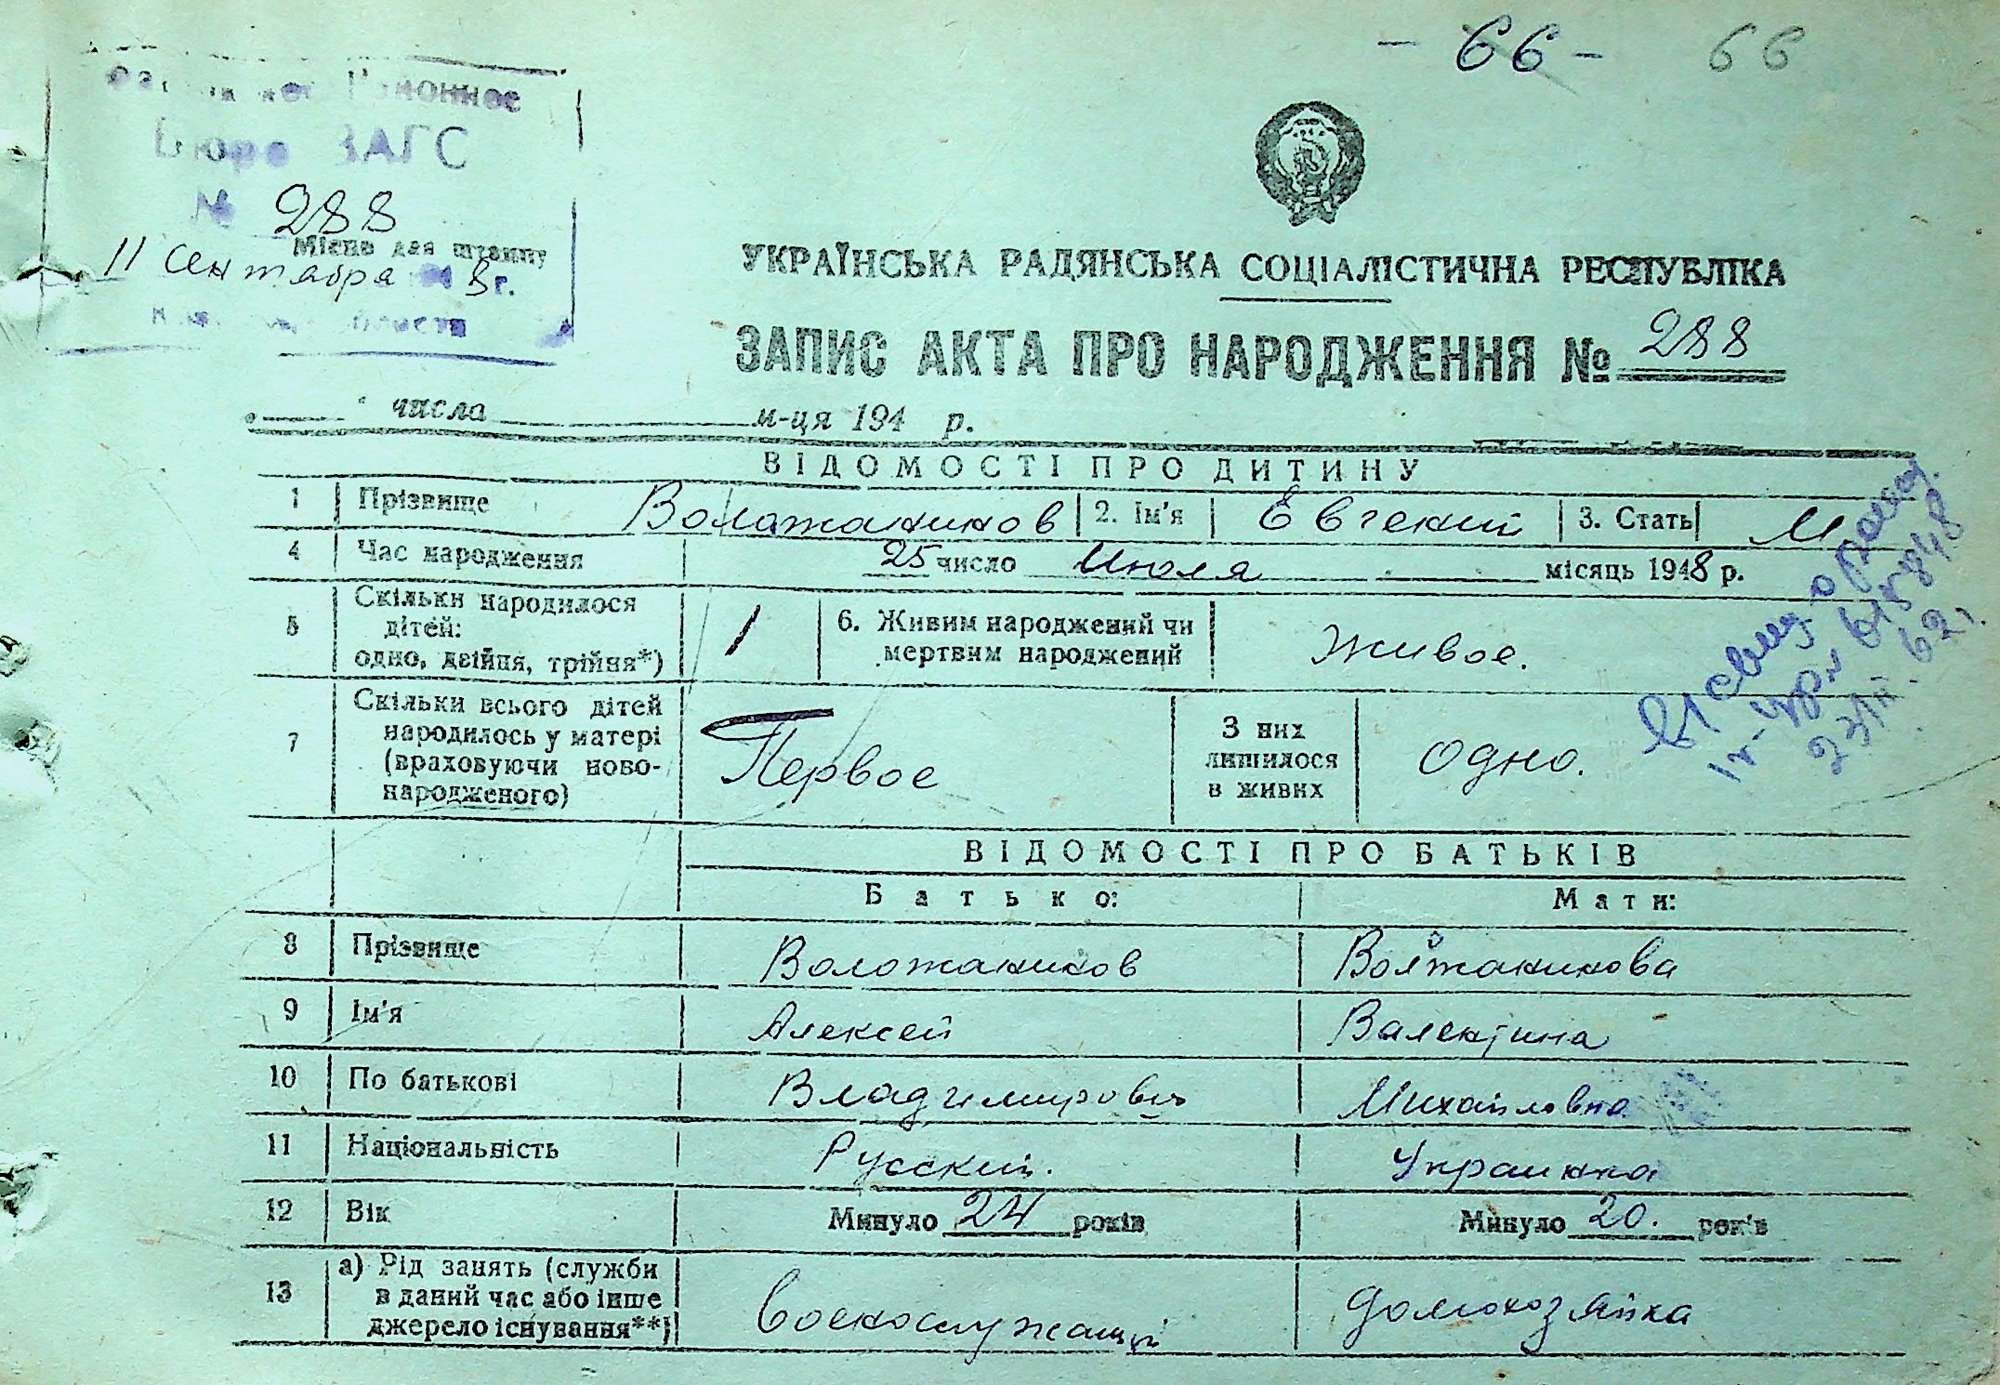 - 66 - 66
Бюро ЗАГС
№ 288
Місце для штампу
11 Сентября 8 г.
области
УКРАЇНСЬКА РАДЯНСЬКА СОЦІАЛІСТИЧНА РЕСПУБЛІКА
ЗАПИС АКТА ПРО НАРОДЖЕННЯ № 288
числа м-ця 194 р.
ВІДОМОСТІ ПРО ДИТИНУ
1 Прізвище Воложанинов 2. Ім'я Евгений 3. Стать М
4 Час народження 25 число Июля місяць 1948 р.
5 Скільки народилося
дітей:
одно, двійня, трійня*) 1 6. Живим народжений чи
мертвим народжений Живое.
7 Скільки всього дітей
народилось у матері
(враховуючи ново-
народженого) Первое З них
лишилося
в живих Одно.
ВІДОМОСТІ ПРО БАТЬКІВ
Батько: Мати:
8 Прізвище Воложанинов Воложанинова
9 Ім'я Алексей Валентина
10 По батькові Владимирович Михайловна
11 Національність Русский. Украинка
12 Вік Минуло 24 років Минуло 20. років
13 а) Рід занять (служби
в даний час або інше
джерело існування**) Военослужащий домохозяйка